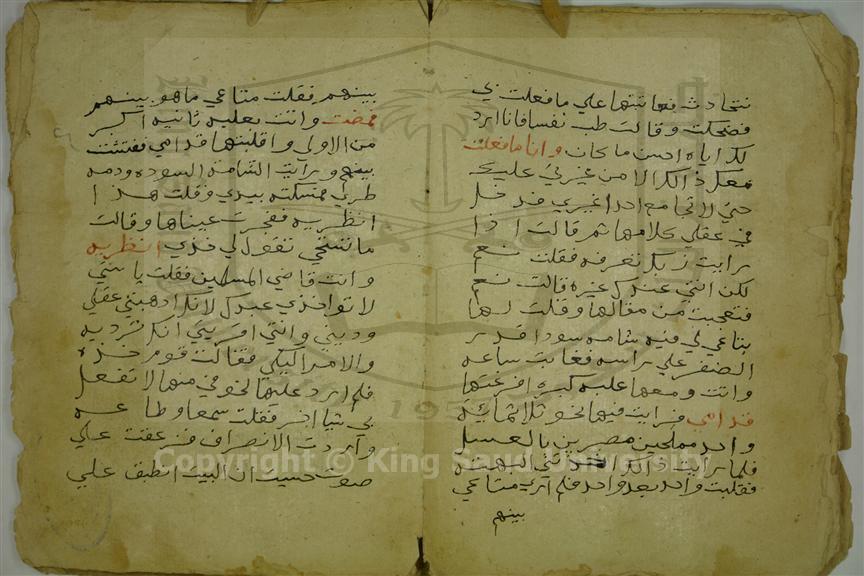 نتحادث فعاتبتها علي ما فعلت بي
فضحكت وقالت طب نفسا فانا ارد
لك اياه احسن ما كان وانا ما فعلت
معك ذالك الا من غيرتي عليك
حتي لا تجامع احدا غيري فدخل
في عقلي كلامها ثم قالت اذا
رايت زبك تعرفه فقلت نعم
لكن انتي عندك غيره قالت نعم
فتعجبت من مقالها وقلت لها
بتاعي لي فيه شامه سودا قدر
الضفر علي راسه فغابت ساعه
واتت ومعها علبه كبيره افرغتها
قدامي فرايت فيها نحو ثلاثمائة
واحد مملحين مصبرين بالعسل
فلما رايت ذالك
فقلبت واحد بعد واحد فلم اري متاعي
بينهم
بينهم فقلت متاعي ما هو بينهم
فمضت واتت بعلبه ثانيه اكبر
من الاولي واقلبتها قدامي ففتشت
بينهم ورايت الشامة السوده ودمه
طري فمسكته بيدي وقلت هذا
انظريه ففجرت عيناها وقالت
ما تستحي تقول لي خدي انظريه
وانت قاضي المسلمين فقلت يا ستي
لا تواخذي عبدك لانك اذهبتي عقلي
وديني وانتي اوريتي انك ترديه
والامر اليكي فقالت قوم خذه
فلم ارد عليها لخوفي منها لا تفعل
بي شيا اخر فقلت سمعا وطاعه
واردت الانصراف فزعقت علي
صوت حسيت ان البيت انطبق علي
Copyright © King Saud University
1957